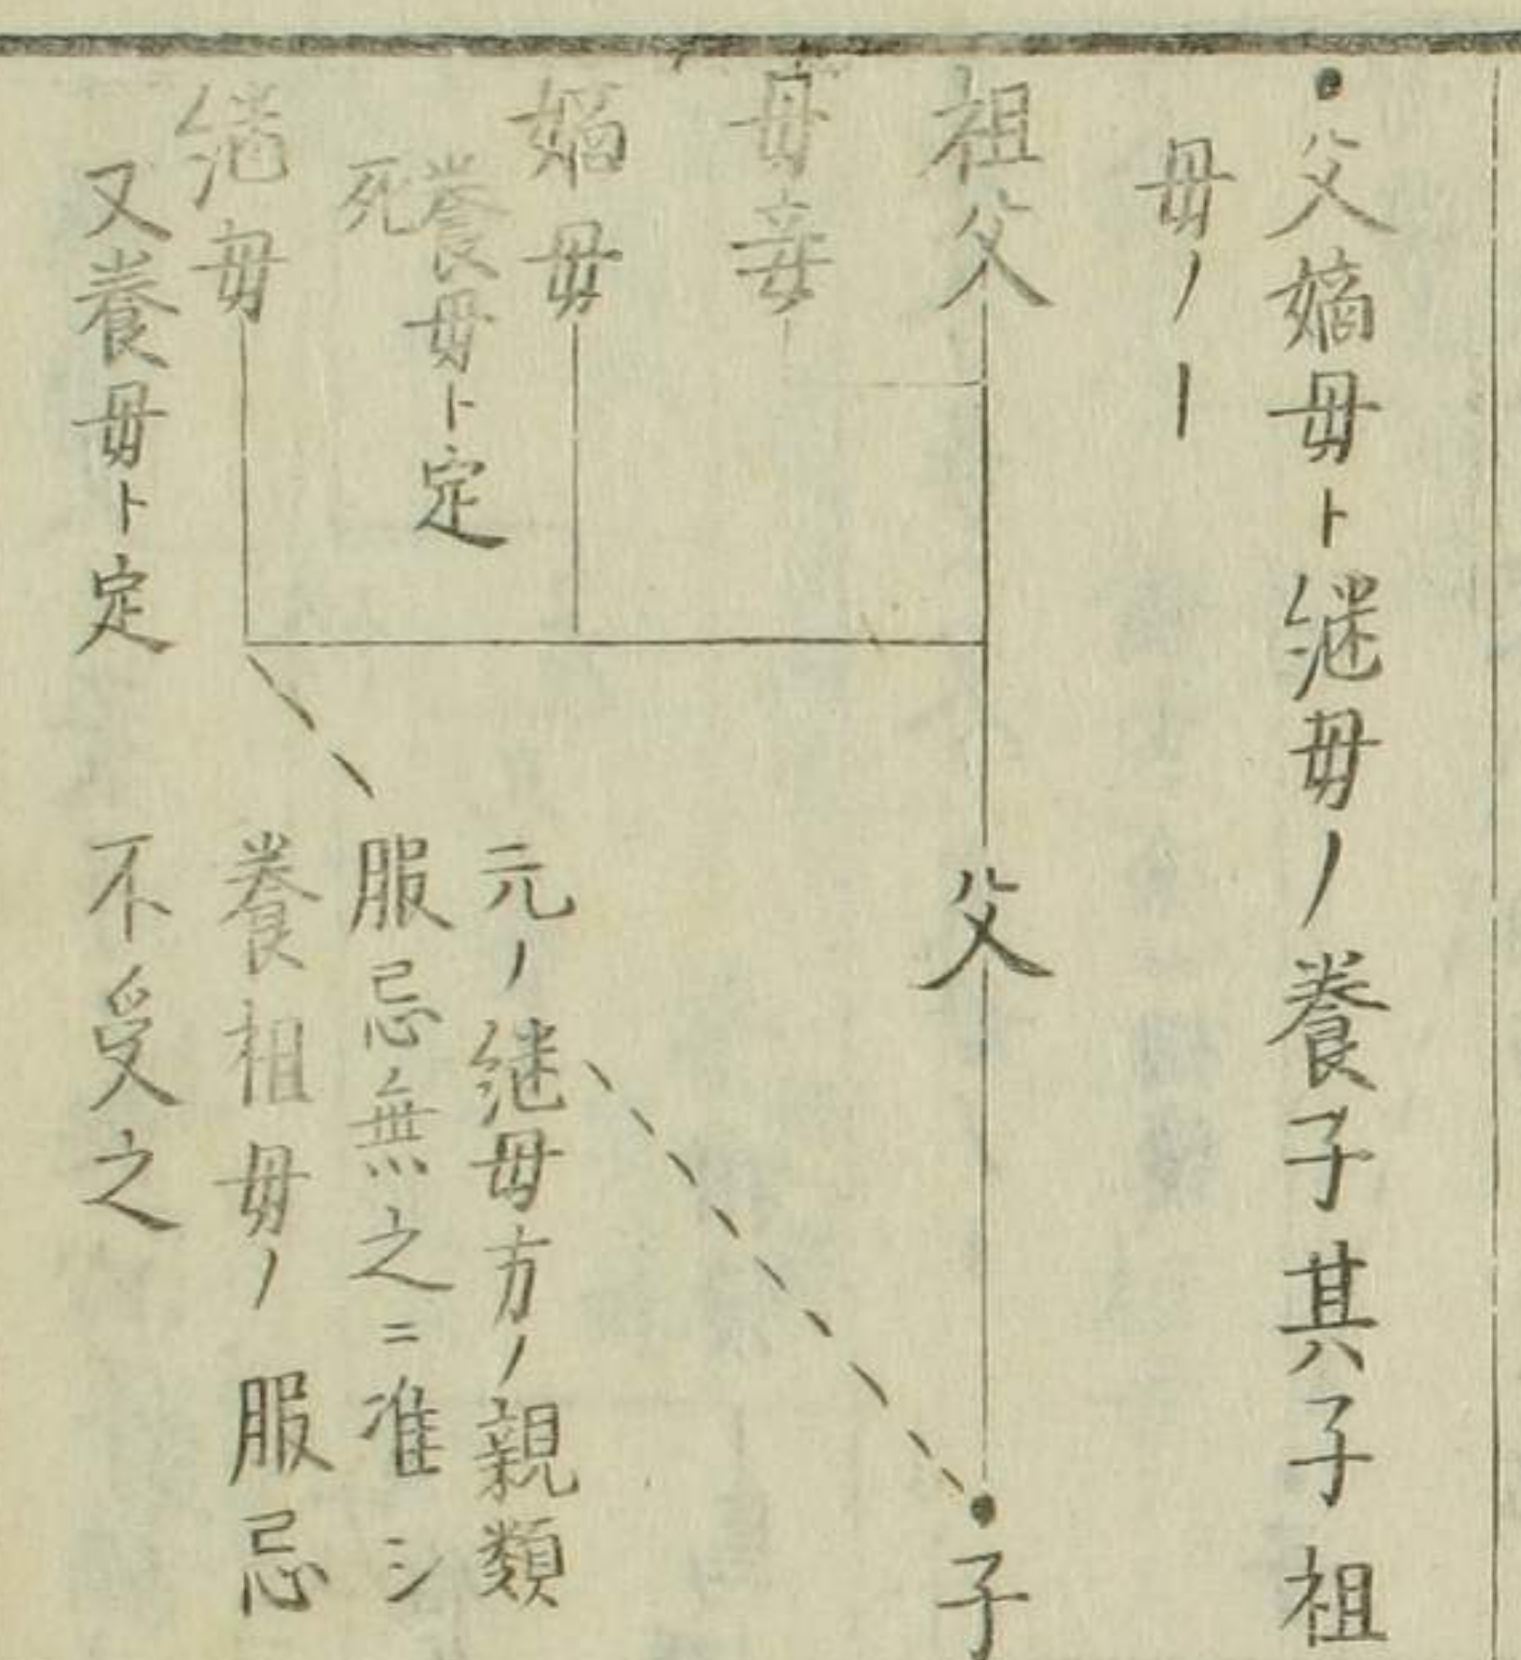 父嫡母ト継母ノ養子其子祖
母ノ丨
祖父
父
子
母妾
嫡母
養母ト定
死
継母
又養母ト定
元ノ継母方ノ親類
服忌無之ニ准シ
養祖母ノ服忌
不受之